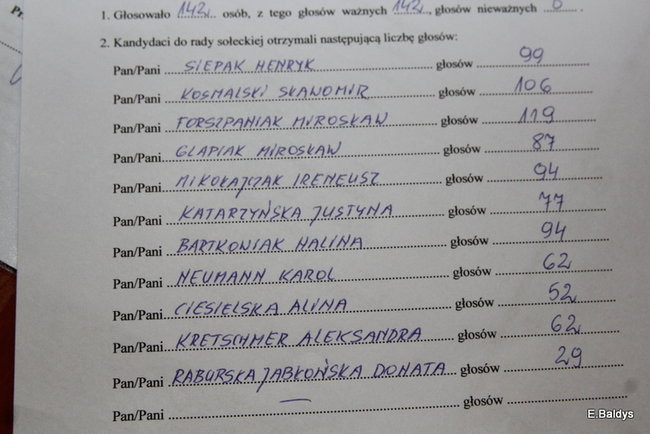 1. Głosowało 142 osób, z tego głosów ważnych 142, głosów nieważnych 0
2. Kandydaci do rady sołeckiej otrzymali następującą liczbę głosów:
Pan/Pani SIEPAK HENRYK głosów 99
Pan/Pani KOSMALSKI SŁAWOMIR głosów 106
Pan/Pani FORSZPANIAK MIROSŁAW głosów 119
Pan/Pani GLAPIAK MIROSŁAW głosów 87
Pan/Pani MIKOŁAJCZAK IRENEUSZ głosów 94
Pan/Pani KATARZYŃSKA JUSTYNA głosów 77
Pan/Pani BARTKOWIAK HALINA głosów 94
Pan/Pani NEUMANN KAROL głosów 62
Pan/Pani CIESIELSKA ALINA głosów 52
Pan/Pani KRETSCHMER ALEKSANDRA głosów 62
Pan/Pani RABURSKA JABŁOŃSKA DONATA głosów 29
Pan/Pani — głosów
E.Bałdys